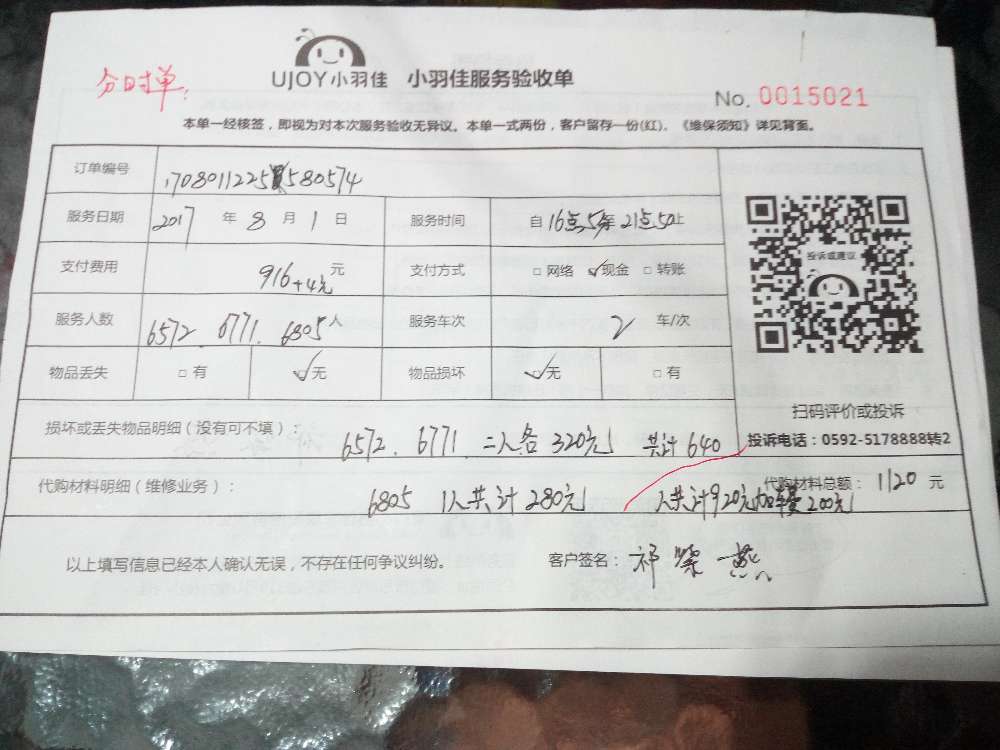 分时单:
UJOY小羽佳 小羽佳服务验收单
No. 0015021
本单一经核签，即视为对本次服务验收无异议。本单一式两份，客户留存一份(红)，《维保须知》详见背面。
订单编号 1708011225 580574
服务日期 2017 年 8 月 1 日 服务时间 自 16点5 至 21点50止
支付费用 916+4元 元 支付方式 □网络 ☑现金 □转账
服务人数 6572. 6771. 6805 人 服务车次 2 车/次
物品丢失 □有 ☑无 物品损坏 ☑无 □有
投诉或建议
扫码评价或投诉
投诉电话：0592-5178888转2
损坏或丢失物品明细（没有可不填）： 6572. 6771. 二人各320元 共计640
代购材料明细（维修业务）： 6805 1人共计280元 人共计920元加车费200元
代购材料总额： 1120 元
以上填写信息已经本人确认无误，不存在任何争议纠纷。 客户签名： 祁 燕